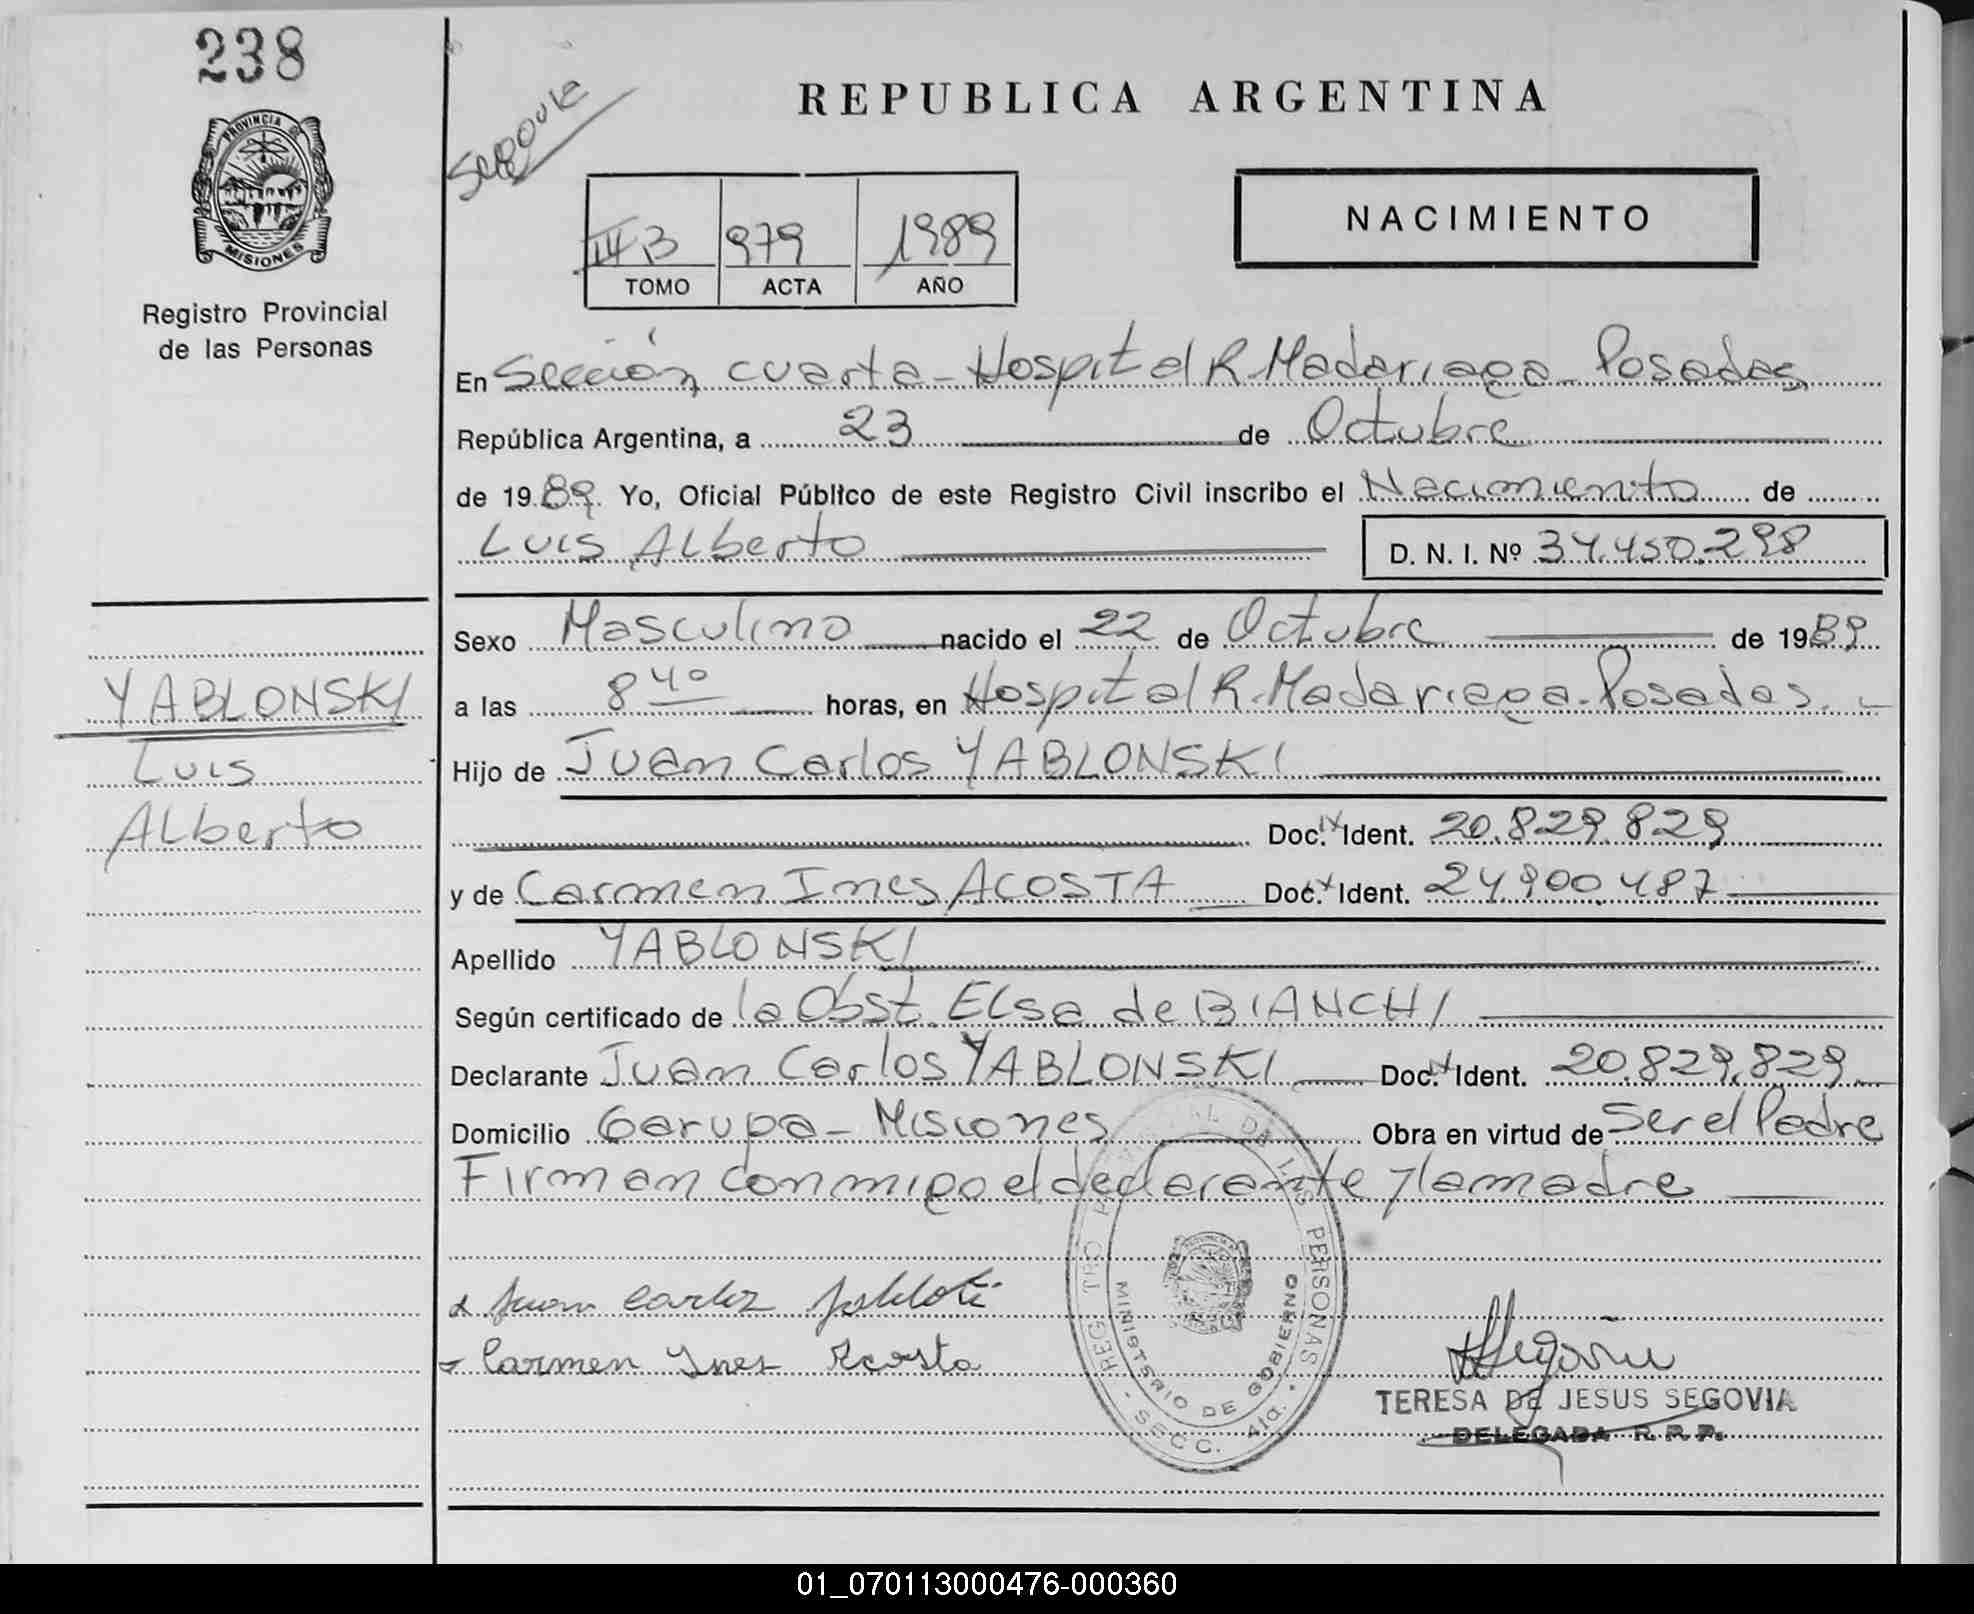 238
PROVINCIA DE
MISIONES
Registro Provincial
de las Personas
Segovia
REPUBLICA ARGENTINA
NACIMIENTO
III B 979 1989
TOMO ACTA AÑO
En Sección cuarta - Hospital R. Madariaga - Posadas
República Argentina, a 23 de Octubre
de 1989. Yo, Oficial Público de este Registro Civil inscribo el Nacimiento de
Luis Alberto D. N. I. Nº 34.450.298
Sexo Masculino nacido el 22 de Octubre de 1989
a las 8 40 horas, en Hospital R. Madariaga - Posadas. -
Hijo de Juan Carlos YABLONSKI
Doc. Ident. 20.829.829
y de Carmen Ines ACOSTA Doc. Ident. 24.900.487
Apellido YABLONSKI
Según certificado de la Obst. Elsa de BIANCHI
Declarante Juan Carlos YABLONSKI Doc. Ident. 20.829.829
Domicilio Garupa - Misiones Obra en virtud de Ser el Padre
Firman conmigo el declarante y la madre
YABLONSKI
Luis
Alberto
Juan Carlos
Carmen Ines Acosta
REGISTRO PROVINCIAL DE LAS PERSONAS - SECC. 4ta. -
MINISTERIO DE GOBIERNO
Segovia
TERESA DE JESUS SEGOVIA
DELEGADA R. P. P.
01_070113000476-000360